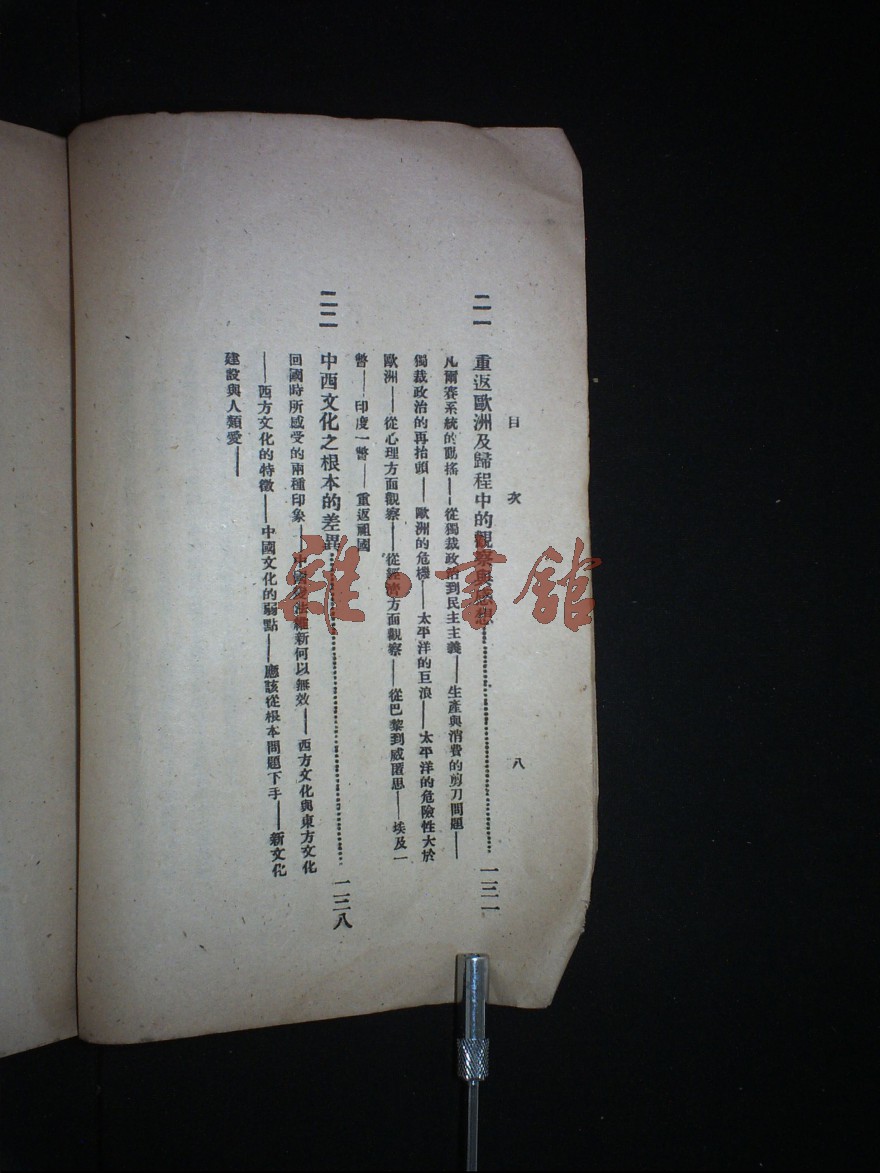 目次　八
二一　重返歐洲及歸程中的觀察與感想……一三一
凡爾賽系統的動搖——從獨裁政治到民主主義——生產與消費的剪刀問題——
獨裁政治的再抬頭——歐洲的危機——太平洋的巨浪——太平洋的危險性大於
歐洲——從心理方面觀察——從經濟方面觀察——從巴黎到威匿思——埃及一
瞥——印度一瞥——重返祖國
二二　中西文化之根本的差異……一三八
回國時所感受的兩種印象——中國變法維新何以無效——西方文化與東方文化
——西方文化的特徵——中國文化的弱點——應該從根本問題下手——新文化
建設與人類愛——
雜·書館